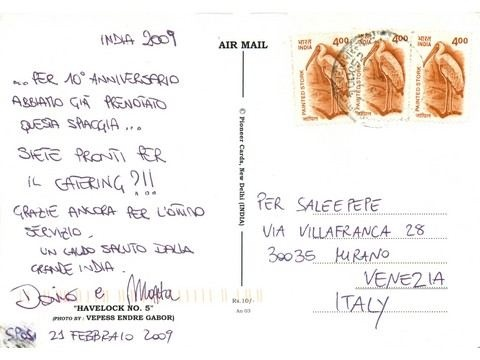 INDIA 2009
... PER 10° ANNIVERSARIO
ABBIAMO GIÀ PRENOTATO
QUESTA SPIAGGIA ...
SIETE PRONTI PER
IL CATERING?!!
GRAZIE ANCORA PER L'OTTIMO
SERVIZIO.
UN CALDO SALUTO DALLA
GRANDE INDIA.
"HAVELOCK NO. 5"
(PHOTO BY : VEPESS ENDRE GABOR)
SPOSI 21 FEBBRAIO 2009
Rs.10/-
An 03
© Pioneer Cards, New Delhi (INDIA)
AIR MAIL
भारत INDIA 4.00
PAINTED STORK
जांघिल
भारत INDIA 4.00
PAINTED STORK
जांघिल
भारत INDIA 4.00
PAINTED STORK
जांघिल
PER SALEEPEPE
VIA VILLAFRANCA 28
30035 MIRANO
VENEZIA
ITALY